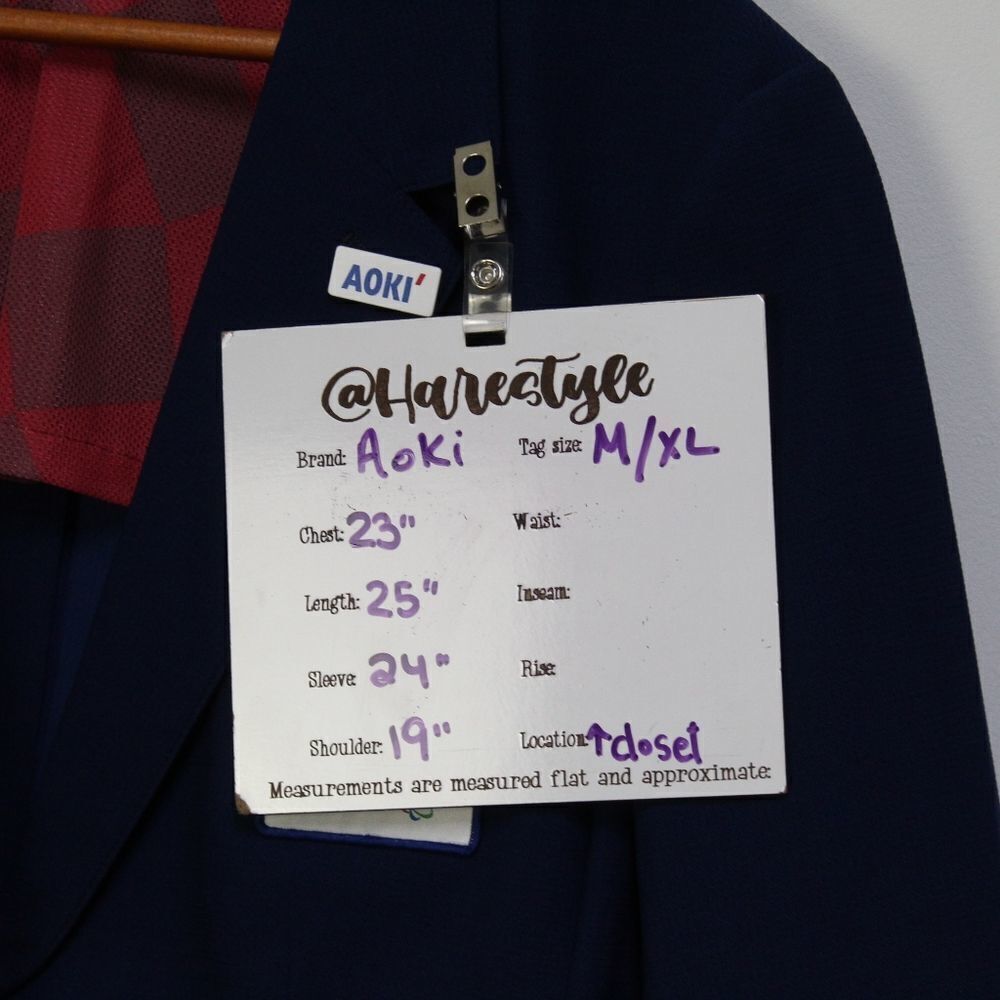 AOKI'
@Harestyle
Brand: Aoki Tag size: M/XL
Chest: 23" Waist:
Length: 25" Inseam:
Sleeve: 24" Rise:
Shoulder: 19" Location: ↑closet
Measurements are measured flat and approximate: